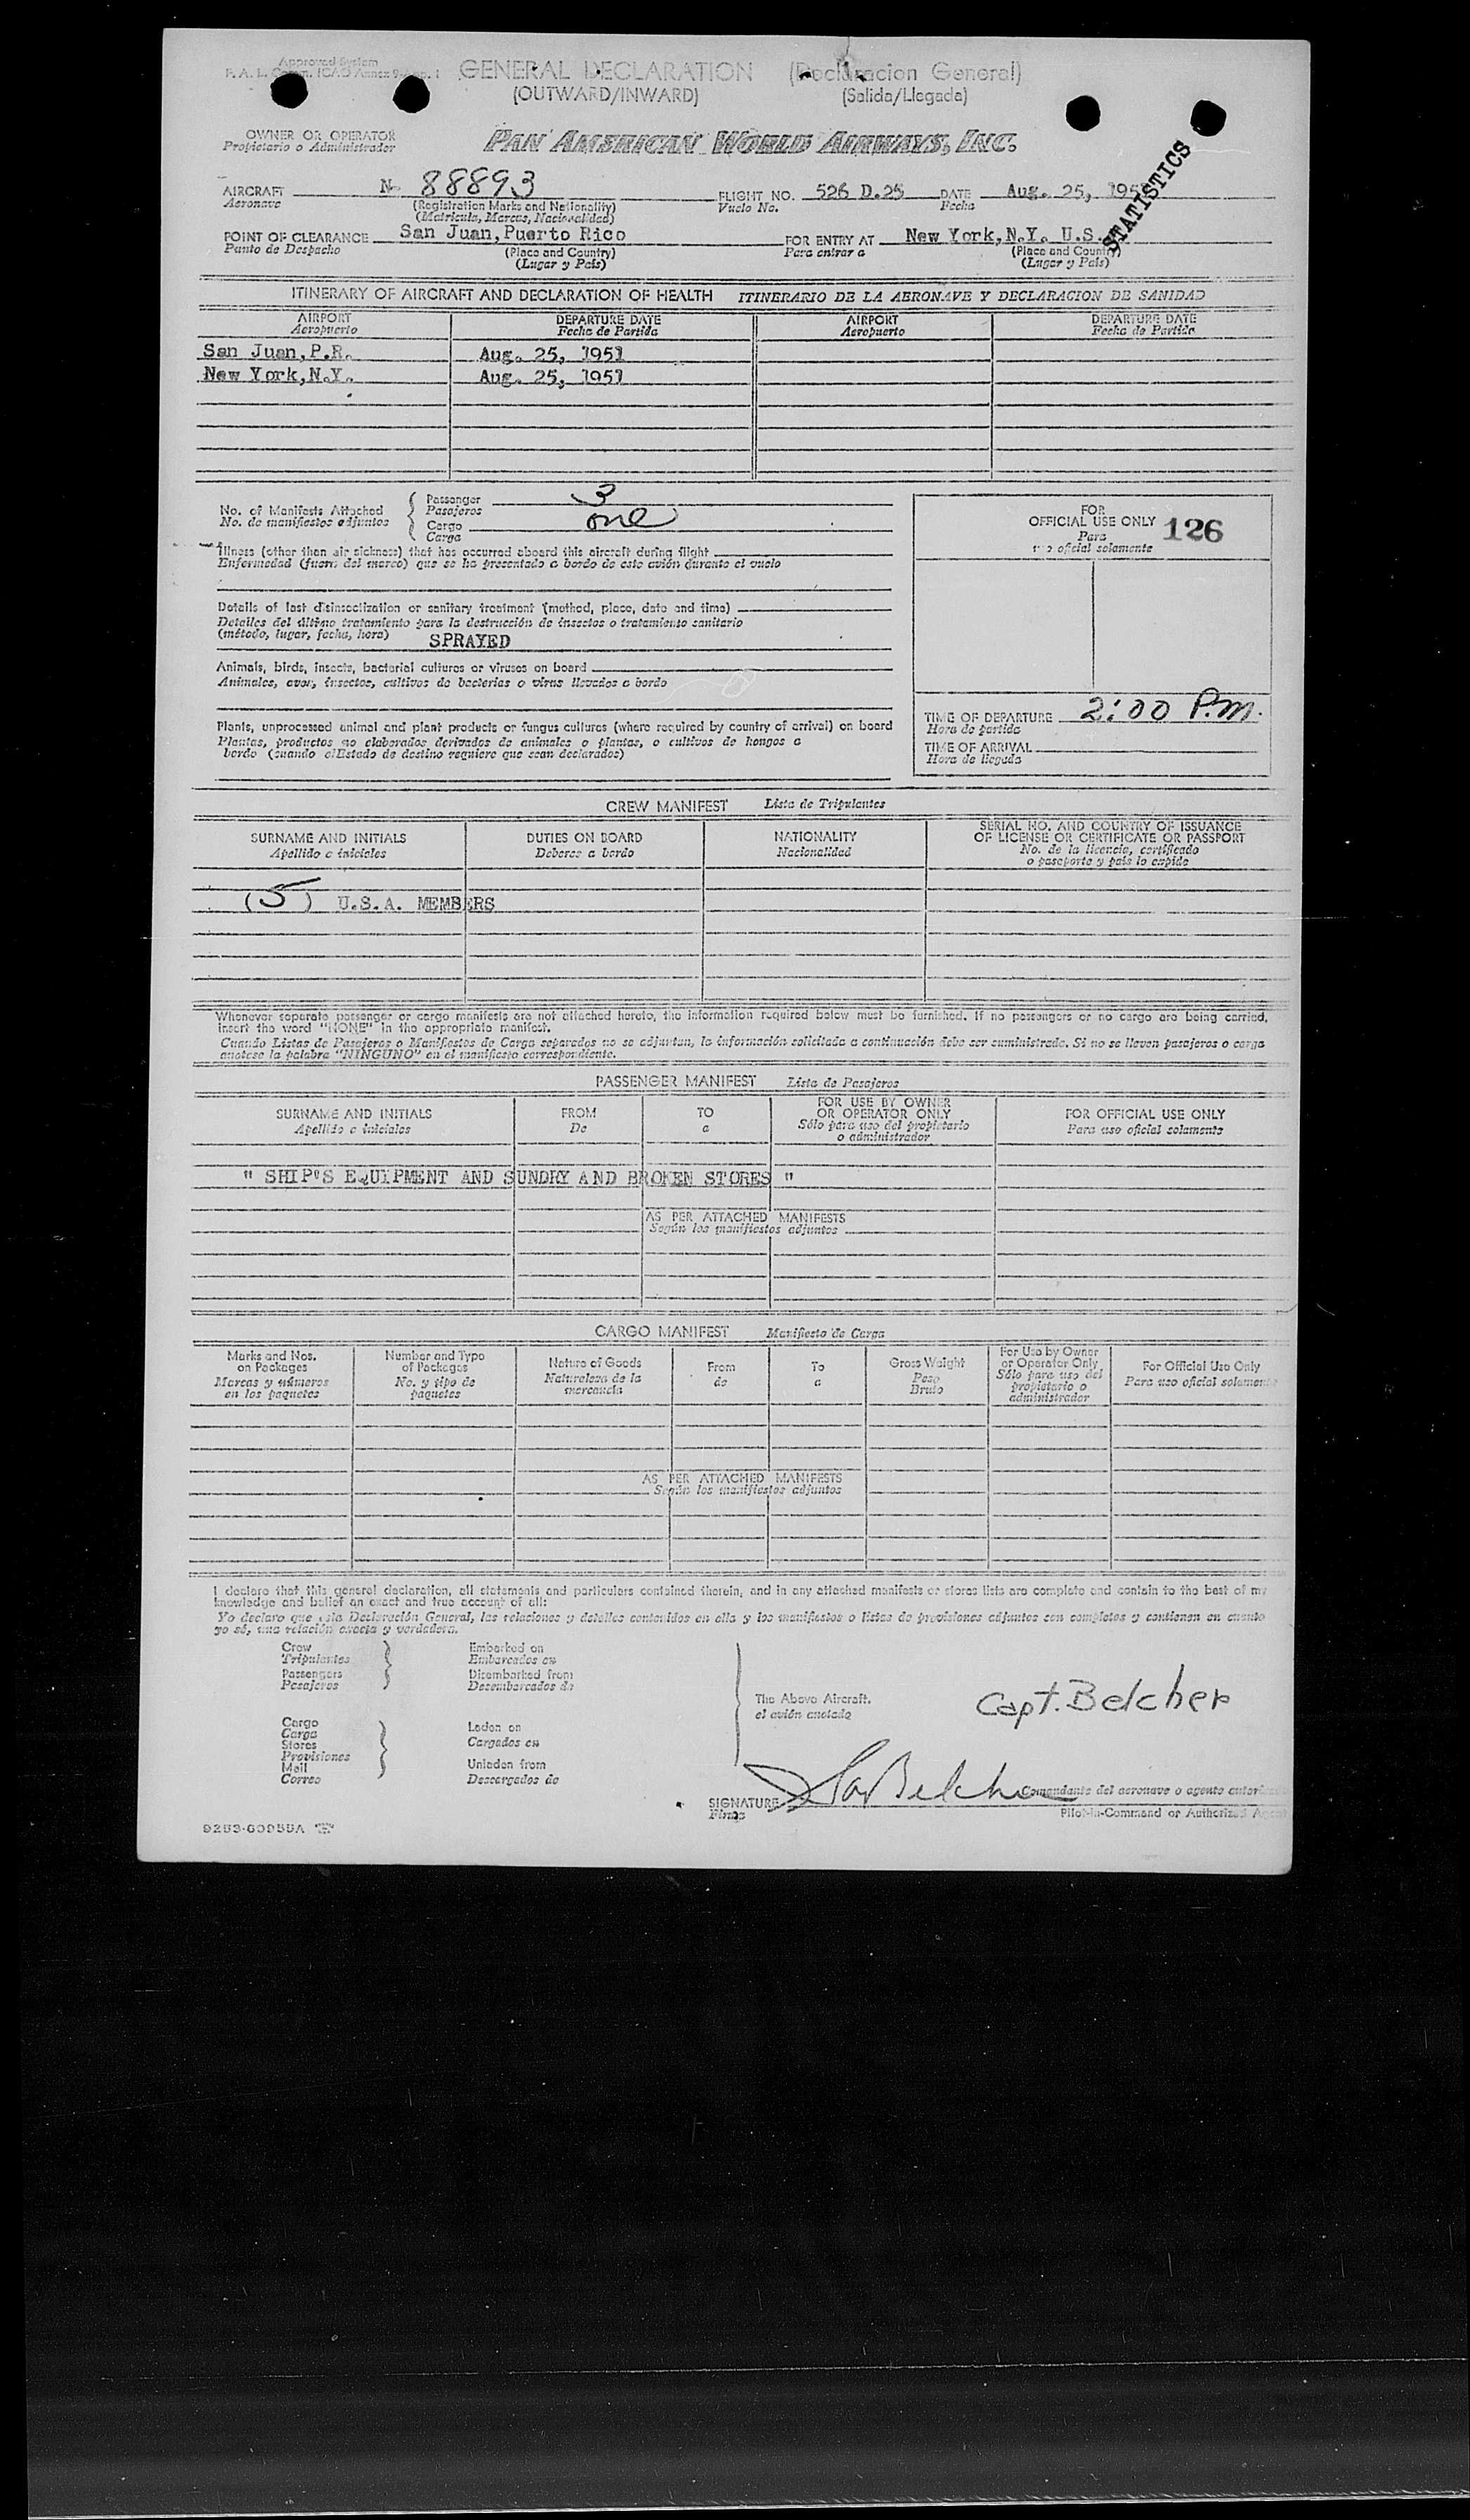 Approved System
F. A. L. Comm. ICAO Annex 9-App. 1
GENERAL DECLARATION (Declaracion General)
(OUTWARD/INWARD) (Salida/Llegada)
OWNER OR OPERATOR
Propietario o Administrador
PAN AMERICAN WORLD AIRWAYS, INC.
AIRCRAFT N- 88893 FLIGHT NO. 526 D.25 DATE Aug. 25, 195
Aeronave (Registration Marks and Nationality) Vuelo No. Fecha
(Matricula, Marcas, Nacionalidad)
STATISTICS
POINT OF CLEARANCE San Juan, Puerto Rico FOR ENTRY AT New York, N.Y. U.S.
Punto de Despacho (Place and Country) Para entrar a (Place and Country)
(Lugar y País) (Lugar y País)
ITINERARY OF AIRCRAFT AND DECLARATION OF HEALTH ITINERARIO DE LA AERONAVE Y DECLARACION DE SANIDAD
AIRPORT DEPARTURE DATE AIRPORT DEPARTURE DATE
Aeropuerto Fecha de Partida Aeropuerto Fecha de Partida
San Juan, P.R. Aug. 25, 1951
New York, N.Y. Aug. 25, 1951
No. of Manifests Attached
No. de manifiestos adjuntos
Passenger 3
Pasajeros
Cargo one
Carga
FOR
OFFICIAL USE ONLY 126
Para
uso oficial solamente
Illness (other than air sickness) that has occurred aboard this aircraft during flight
Enfermedad (fuera del mareo) que se ha presentado a bordo de este avión durante el vuelo
Details of last disinsectization or sanitary treatment (method, place, date and time)
Detalles del último tratamiento para la destrucción de insectos o tratamiento sanitario
(método, lugar, fecha, hora) SPRAYED
Animals, birds, insects, bacterial cultures or viruses on board
Animales, aves, insectos, cultivos de bacterias o virus llevados a bordo
Plants, unprocessed animal and plant products or fungus cultures (where required by country of arrival) on board
Plantas, productos no elaborados derivados de animales o plantas, o cultivos de hongos a
bordo (cuando el Estado de destino requiere que sean declarados)
TIME OF DEPARTURE 2:00 P.m.
Hora de partida
TIME OF ARRIVAL
Hora de llegada
CREW MANIFEST Lista de Tripulantes
SURNAME AND INITIALS DUTIES ON BOARD NATIONALITY SERIAL NO. AND COUNTRY OF ISSUANCE
OF LICENSE OR CERTIFICATE OR PASSPORT
Apellido e iniciales Deberes a bordo Nacionalidad No. de la licencia, certificado
o pasaporte y país lo expide
(5) U.S.A. MEMBERS
Whenever separate passenger or cargo manifests are not attached hereto, the information required below must be furnished. If no passengers or no cargo are being carried,
insert the word "NONE" in the appropriate manifest.
Cuando Listas de Pasajeros o Manifiestos de Carga separados no se adjuntan, la información solicitada a continuación debe ser suministrada. Si no se llevan pasajeros o carga
anotese la palabra "NINGUNO" en el manifiesto correspondiente.
PASSENGER MANIFEST Lista de Pasajeros
SURNAME AND INITIALS FROM TO FOR USE BY OWNER
OR OPERATOR ONLY FOR OFFICIAL USE ONLY
Apellido e iniciales De a Sólo para uso del propietario
o administrador Para uso oficial solamente
" SHIP'S EQUIPMENT AND SUNDRY AND BROKEN STORES "
AS PER ATTACHED MANIFESTS
Según los manifiestos adjuntos
CARGO MANIFEST Manifiesto de Carga
Marks and Nos.
on Packages
Marcas y números
en los paquetes
Number and Type
of Packages
No. y tipo de
paquetes
Nature of Goods
Naturaleza de la
mercancía
From
de
To
a
Gross Weight
Peso
Bruto
For Use by Owner
or Operator Only
Sólo para uso del
propietario o
administrador
For Official Use Only
Para uso oficial solamente
AS PER ATTACHED MANIFESTS
Según los manifiestos adjuntos
I declare that this general declaration, all statements and particulars contained therein, and in any attached manifests or stores lists are complete and contain to the best of my
knowledge and belief an exact and true account of all:
Yo declaro que esta Declaración General, las relaciones y detalles contenidos en ella y los manifiestos o listas de provisiones adjuntos son completos y contienen en cuanto
yo sé, una relación exacta y verdadera.
Crew
Tripulantes
Passengers
Pasajeros
Embarked on
Embarcados en
Disembarked from
Desembarcados de
Cargo
Carga
Stores
Provisiones
Mail
Correo
Laden on
Cargados en
Unladen from
Descargados de
The Above Aircraft.
el avión anotado
Capt. Belcher
SIGNATURE Belcher
Firma
Comandante del aeronave o agente autoriz
Pilot-in-Command or Authorized Agent